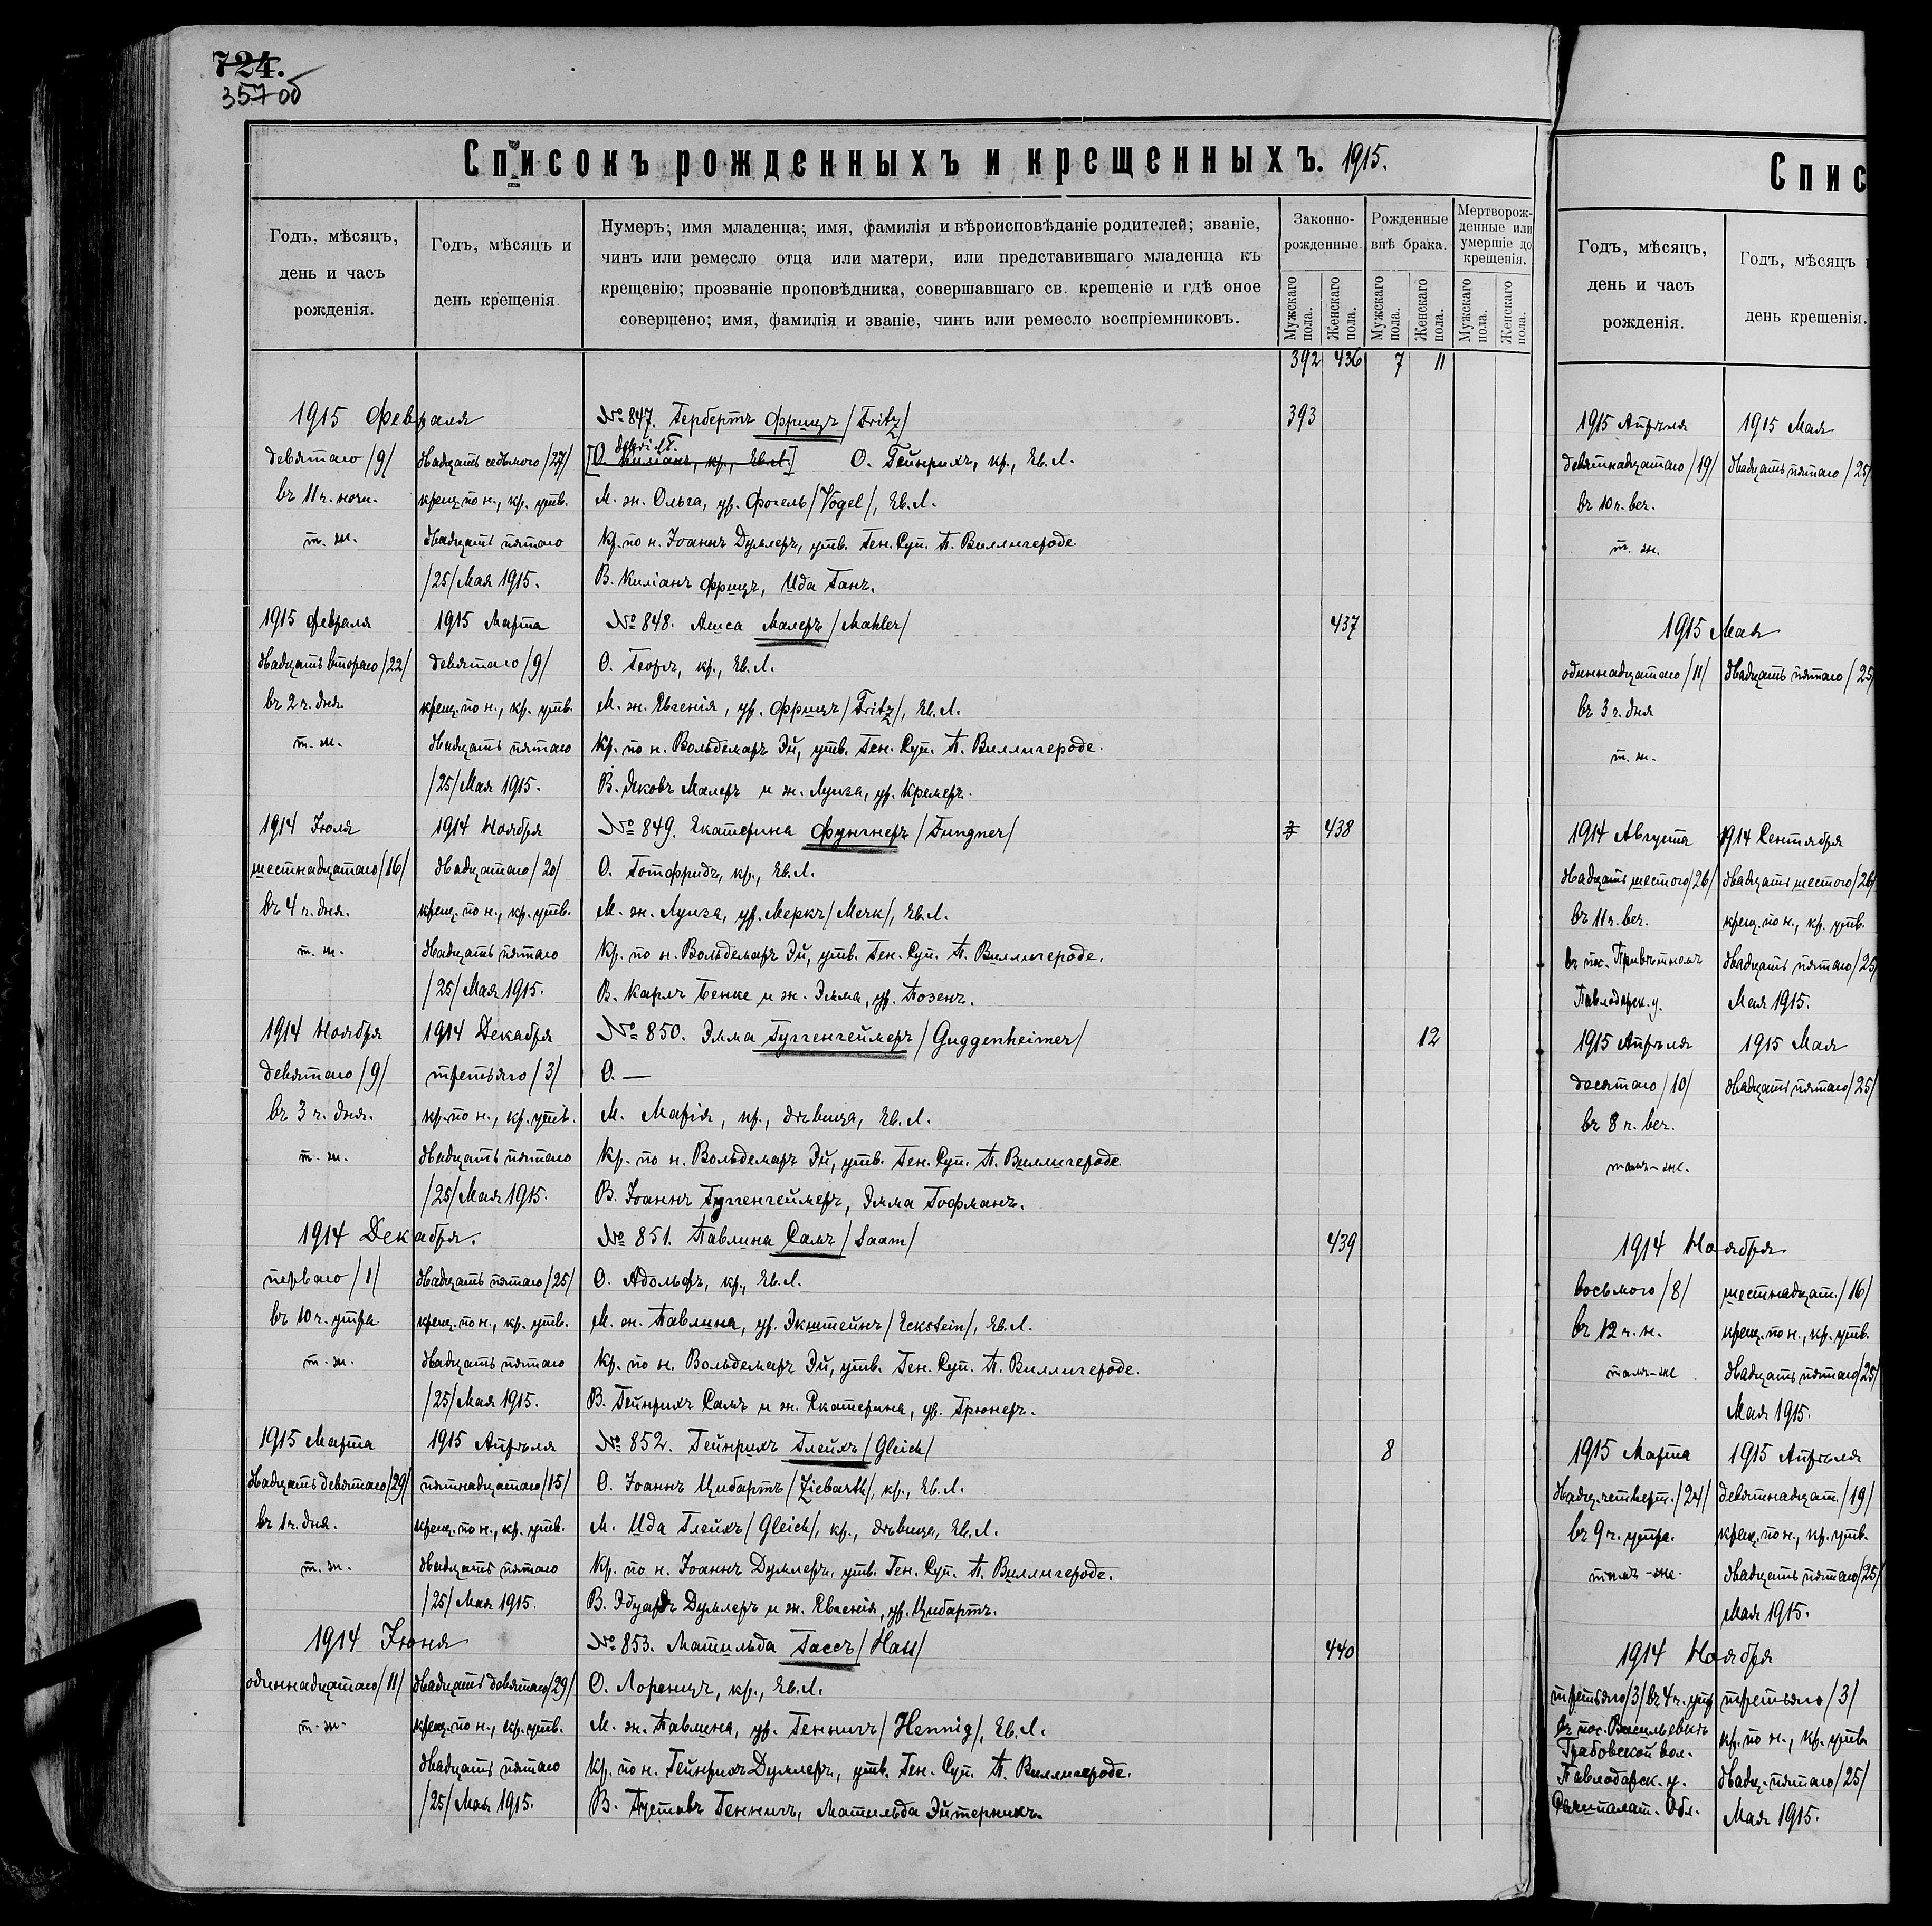 724.
357 об
Списокъ рожденныхъ и крещенныхъ. 1915.
Годъ, мѣсяцъ, день и часъ рожденія.
Годъ, мѣсяцъ и день крещенія.
Нумеръ; имя младенца; имя, фамилія и вѣроисповѣданіе родителей; званіе,
чинъ или ремесло отца или матери, или представившаго младенца къ
крещенію; прозваніе проповѣдника, совершавшаго св. крещеніе и гдѣ оное
совершено; имя, фамилія и званіе, чинъ или ремесло воспріемниковъ.
Законно-рожденные.
Рожденные внѣ брака.
Мертворож-денные или умершіе до крещенія.
Мужскаго пола.
Женскаго пола.
Мужскаго пола.
Женскаго пола.
Мужскаго пола.
Женскаго пола.
392 436 7 11
1915 Февраля №847. Гербертъ Фрицъ /Fritz/ 393
девятаго /9/ двадцать седьмого /27/ [О. Киліанъ, кр., Ев.Л.] О. Гейнрихъ, кр., Ев.Л.
въ 11 ч. ночи. крещ. по н., кр. утв. М. ж. Ольга, ур. Фогель /Vogel/, Ев.Л.
т. ж. двадцать пятаго Кр. по н. Іоаннъ Думлеръ, утв. Ген. Суп. П. Виллигероде.
/25/ Мая 1915. В. Киліанъ Фрицъ, Ида Ганъ.
1915 Февраля 1915 Марта №848. Алиса Малеръ /Mahler/ 437
двадцать второго /22/ девятаго /9/ О. Георгъ, кр., Ев.Л.
въ 2 ч. дня. крещ. по н., кр. утв. М. ж. Евгенія, ур. Фрицъ /Fritz/, Ев.Л.
т. ж. двадцать пятаго Кр. по н. Вольдемаръ Эй, утв. Ген. Суп. П. Виллигероде.
/25/ Мая 1915. В. Яковъ Малеръ и ж. Луиза, ур. Кремеръ.
1914 Іюля 1914 Ноября №849. Екатерина Фунгнеръ /Fungner/ 438
шестнадцатаго /16/ двадцатаго /20/ О. Готфридъ, кр., Ев.Л.
въ 4 ч. дня. крещ. по н., кр. утв. М. ж. Луиза, ур. Меркъ /Merk/, Ев.Л.
т. ж. двадцать пятаго Кр. по н. Вольдемаръ Эй, утв. Ген. Суп. П. Виллигероде.
/25/ Мая 1915. В. Карлъ Бенке и ж. Эмма, ур. Позенъ.
1914 Ноября 1914 Декабря №850. Эмма Гуггенгеймеръ /Guggenheimer/ 12
девятаго /9/ третьяго /3/ О. —
въ 3 ч. дня. кр. по н., кр. утв. М. Марія, кр., дѣвица, Ев.Л.
т. ж. двадцать пятаго Кр. по н. Вольдемаръ Эй, утв. Ген. Суп. П. Виллигероде.
/25/ Мая 1915. В. Іоаннъ Гуггенгеймеръ, Эмма Гофманъ.
1914 Декабря. №851. Павлина Самъ /Saam/ 439
перваго /1/ двадцать пятаго /25/ О. Адольфъ, кр., Ев.Л.
въ 10 ч. утра крещ. по н., кр. утв. М. ж. Павлина, ур. Экштейнъ /Eckstein/, Ев.Л.
т. ж. двадцать пятаго Кр. по н. Вольдемаръ Эй, утв. Ген. Суп. П. Виллигероде.
/25/ Мая 1915. В. Гейнрихъ Самъ и ж. Екатерина, ур. Грюнеръ.
1915 Марта 1915 Апрѣля №852. Гейнрихъ Глейхъ /Gleich/ 8
двадцать девятаго /29/ пятнадцатаго /15/ О. Іоаннъ Цибартъ /Ziebarth/, кр., Ев.Л.
въ 1 ч. дня. крещ. по н., кр. утв. М. Ида Глейхъ /Gleich/, кр., дѣвица, Ев.Л.
т. ж. двадцать пятаго Кр. по н. Іоаннъ Думлеръ, утв. Ген. Суп. П. Виллигероде.
/25/ Мая 1915. В. Эдуардъ Думлеръ и ж. Евгенія, ур. Цибартъ.
1914 Іюня №853. Матильда Гассъ /Hass/ 440
одиннадцатаго /11/ двадцать девятаго /29/ О. Лоренцъ, кр., Ев.Л.
т. ж. крещ. по н., кр. утв. М. ж. Павлина, ур. Геннигъ /Hennig/, Ев.Л.
двадцать пятаго Кр. по н. Гейнрихъ Думлеръ, утв. Ген. Суп. П. Виллигероде.
/25/ Мая 1915. В. Густавъ Геннигъ, Матильда Эйтерникъ.
Спис
Годъ, мѣсяцъ, день и часъ рожденія.
Годъ, мѣсяцъ
день крещенія.
1915 Апрѣля 1915 Мая
девятнадцатаго /19/ двадцать пятаго /25/
въ 10 ч. веч.
т. ж.
1915 Мая
одиннадцатаго /11/ двадцать пятаго /25
въ 3 ч. дня
т. ж.
1914 Августа 1914 Сентября
двадцать шестого /26/ двадцать шестого /26/
въ 11 ч. веч. крещ. по н., кр. утв.
въ пос. Привѣтномъ двадцать пятаго /25/
Павлодарск. у. Мая 1915.
1915 Апрѣля 1915 Мая
десятаго /10/ двадцать пятаго /25/
въ 8 ч. веч.
тамъ-же.
1914 Ноября
восьмого /8/ шестнадцат. /16/
въ 12 ч. н. крещ. по н., кр. утв.
тамъ-же двадцать пятаго /25/
Мая 1915.
1915 Марта 1915 Апрѣля
двадц. четверт. /24/ девятнадцат. /19/
въ 9 ч. утра. крещ. по н., кр. утв.
тамъ-же. двадцать пятаго /25/
Мая 1915.
1914 Ноября
третьяго /3/ въ 4 ч. утр третьяго /3/
въ пос. Васильевкѣ кр. по н., кр. утв.
Грабовской вол.
Павлодарск. у. двадц. пятаго /25/
Семипалат. Обл. Мая 1915.